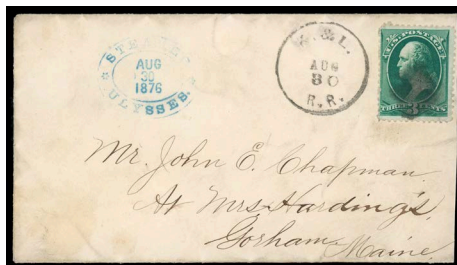 STEAMER
AUG
30
1876
ULYSSES.
K. & L.
AUG
30
R.R.
U.S. POSTAGE
THREE CENTS
3
Mr. John E. Chapman.
At Mrs Harding's,
Gorham,
Maine.